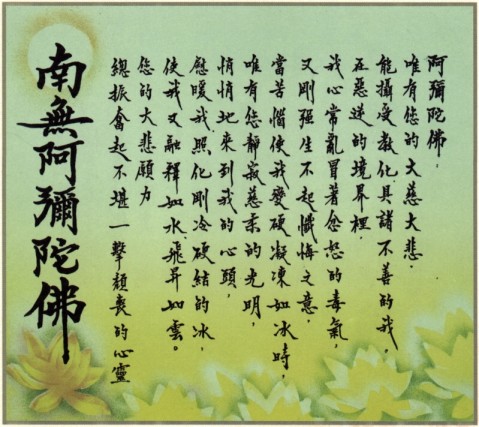 阿彌陀佛，
唯有您的大慈大悲，
能攝受教化具諸不善的我，
在惡逆的境界裡，
我心常亂冒著忿怒的毒氣，
又剛強生不起懺悔之意，
當苦惱使我變硬凝凍如冰時，
唯有您靜寂慈柔的光明，
悄悄地來到我的心頭，
慰暖我、照化剛冷硬結的冰，
使我又融釋如水、飛昇如雲。
您的大悲願力
總振奮起不堪一擊頹喪的心靈
南無阿彌陀佛